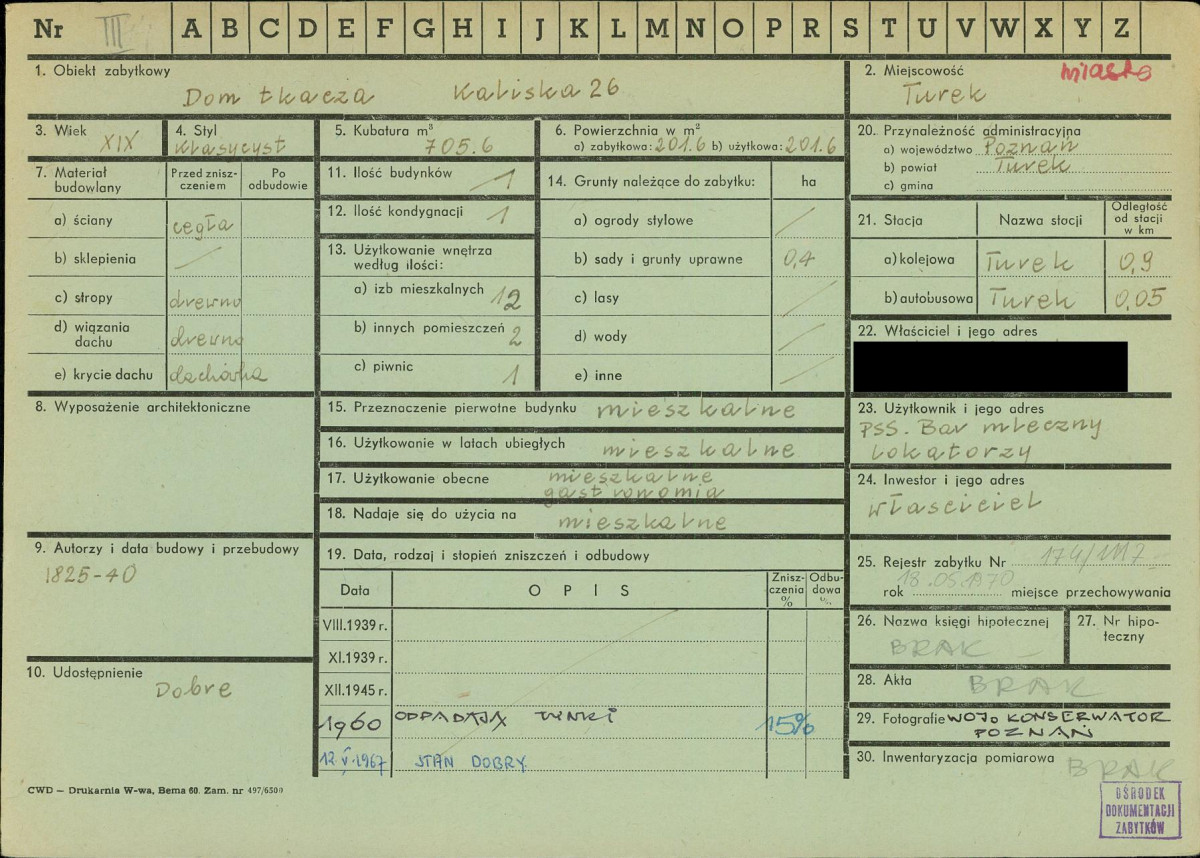 Nr III A B C D E F G H I J K L M N O P R S T U V W X Y Z
1. Obiekt zabytkowy
Dom tkacza Kaliska 26
2. Miejscowość miasto
Turek
3. Wiek
XIX
4. Styl
klasycyst
5. Kubatura m³
705.6
6. Powierzchnia w m²
a) zabytkowa: 201.6 b) użytkowa: 201.6
20. Przynależność administracyjna
a) województwo Poznań
b) powiat Turek
c) gmina
7. Materiał budowlany
Przed zniszczeniem
Po odbudowie
a) ściany cegła
b) sklepienia /
c) stropy drewno
d) wiązania dachu drewno
e) krycie dachu dachówka
11. Ilość budynków 1
12. Ilość kondygnacji 1
13. Użytkowanie wnętrza według ilości:
a) izb mieszkalnych 12
b) innych pomieszczeń 2
c) piwnic 1
14. Grunty należące do zabytku: ha
a) ogrody stylowe /
b) sady i grunty uprawne 0,4
c) lasy /
d) wody /
e) inne /
21. Stacja
Nazwa stacji
Odległość od stacji w km
a) kolejowa Turek 0,9
b) autobusowa Turek 0,05
22. Właściciel i jego adres
8. Wyposażenie architektoniczne
15. Przeznaczenie pierwotne budynku mieszkalne
16. Użytkowanie w latach ubiegłych mieszkalne
17. Użytkowanie obecne mieszkalne
gastronomia
18. Nadaje się do użycia na mieszkalne
23. Użytkownik i jego adres
PSS. Bar mleczny
lokatorzy
24. Inwestor i jego adres
właściciel
9. Autorzy i data budowy i przebudowy
1825-40
19. Data, rodzaj i stopień zniszczeń i odbudowy
Data
OPIS
Zniszczenia %
Odbudowa %
VIII.1939 r.
XI.1939 r.
XII.1945 r.
1960 ODPADAJĄ TYNKI 15%
12.V.1967 STAN DOBRY
25. Rejestr zabytku Nr
rok 18.05.1970 miejsce przechowywania
26. Nazwa księgi hipotecznej
BRAK –
27. Nr hipoteczny
10. Udostępnienie
Dobre
28. Akta BRAK
29. Fotografie WOJ. KONSERWATOR
POZNAŃ
30. Inwentaryzacja pomiarowa
BRAK
CWD — Drukarnia W-wa, Bema 60. Zam. nr 497/6500
OŚRODEK
DOKUMENTACJI
ZABYTKÓW